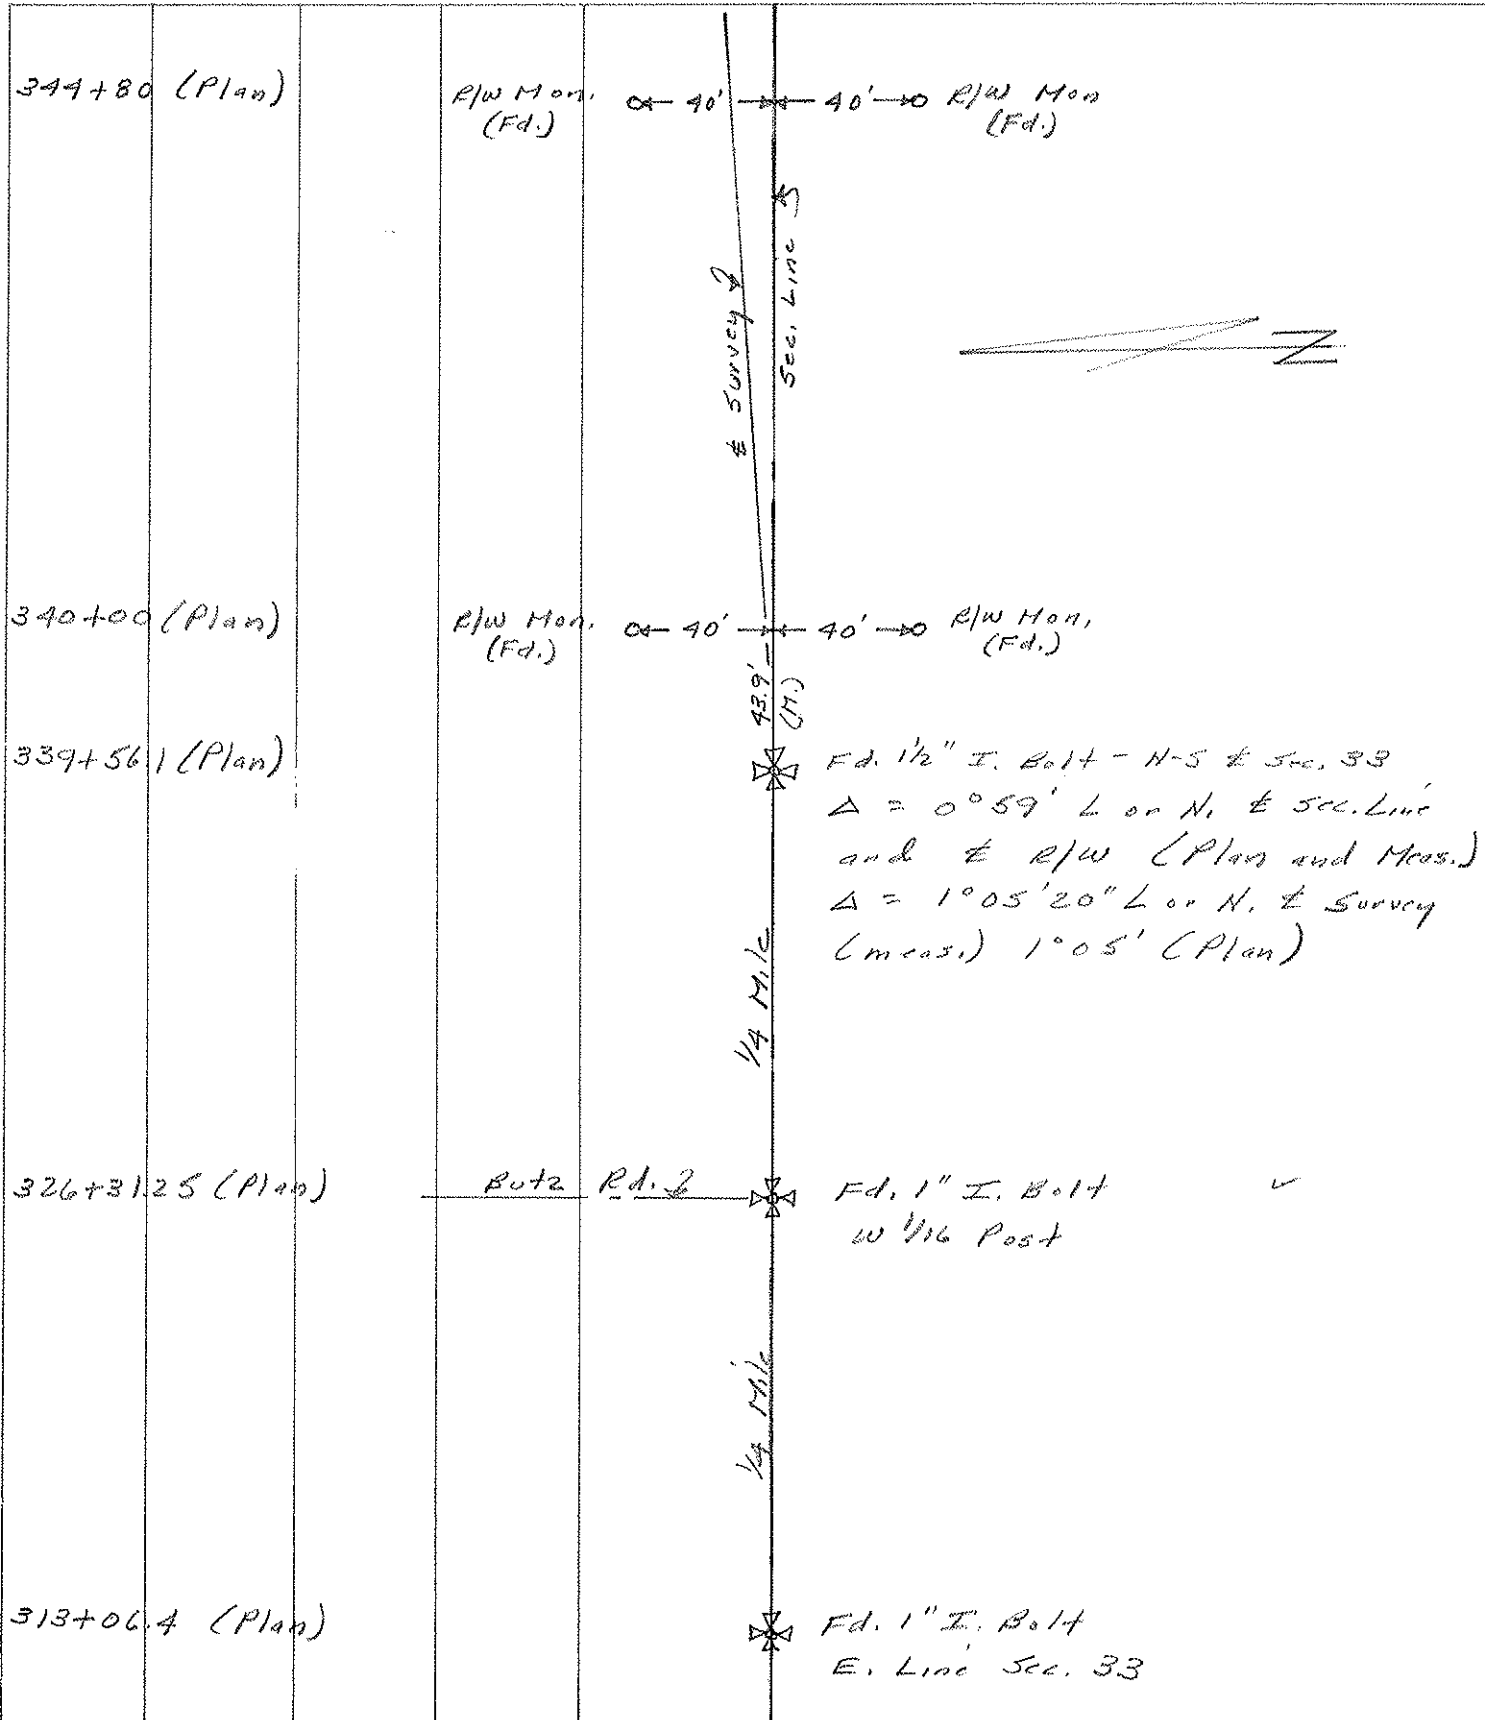 344+80 (Plan)
R/W Mon.
(Fd.)
40'
40'
R/W Mon
(Fd.)
Sec. Line
℄ Survey
N
340+00 (Plan)
R/W Mon.
(Fd.)
40'
40'
R/W Mon.
(Fd.)
43.9'
(M.)
339+56.1 (Plan)
Fd. 1½" I. Bolt - N-S ℄ Sec. 33
Δ = 0°59' L or N. ℄ Sec. Line
and ℄ R/W (Plan and Meas.)
Δ = 1°05'20" L or N. ℄ Survey
(meas.) 1°05' (Plan)
1/4 Mile
326+31.25 (Plan)
Butz Rd.
Fd. 1" I. Bolt
W 1/16 Post
1/4 Mile
313+06.4 (Plan)
Fd. 1" I. Bolt
E. Line Sec. 33